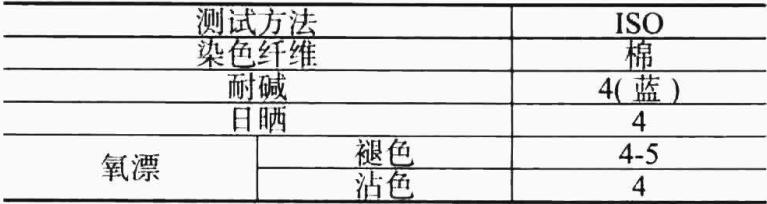 测试方法 ISO
染色纤维 棉
耐碱 4(蓝)
日晒 4
氧漂 褪色 4-5
沾色 4